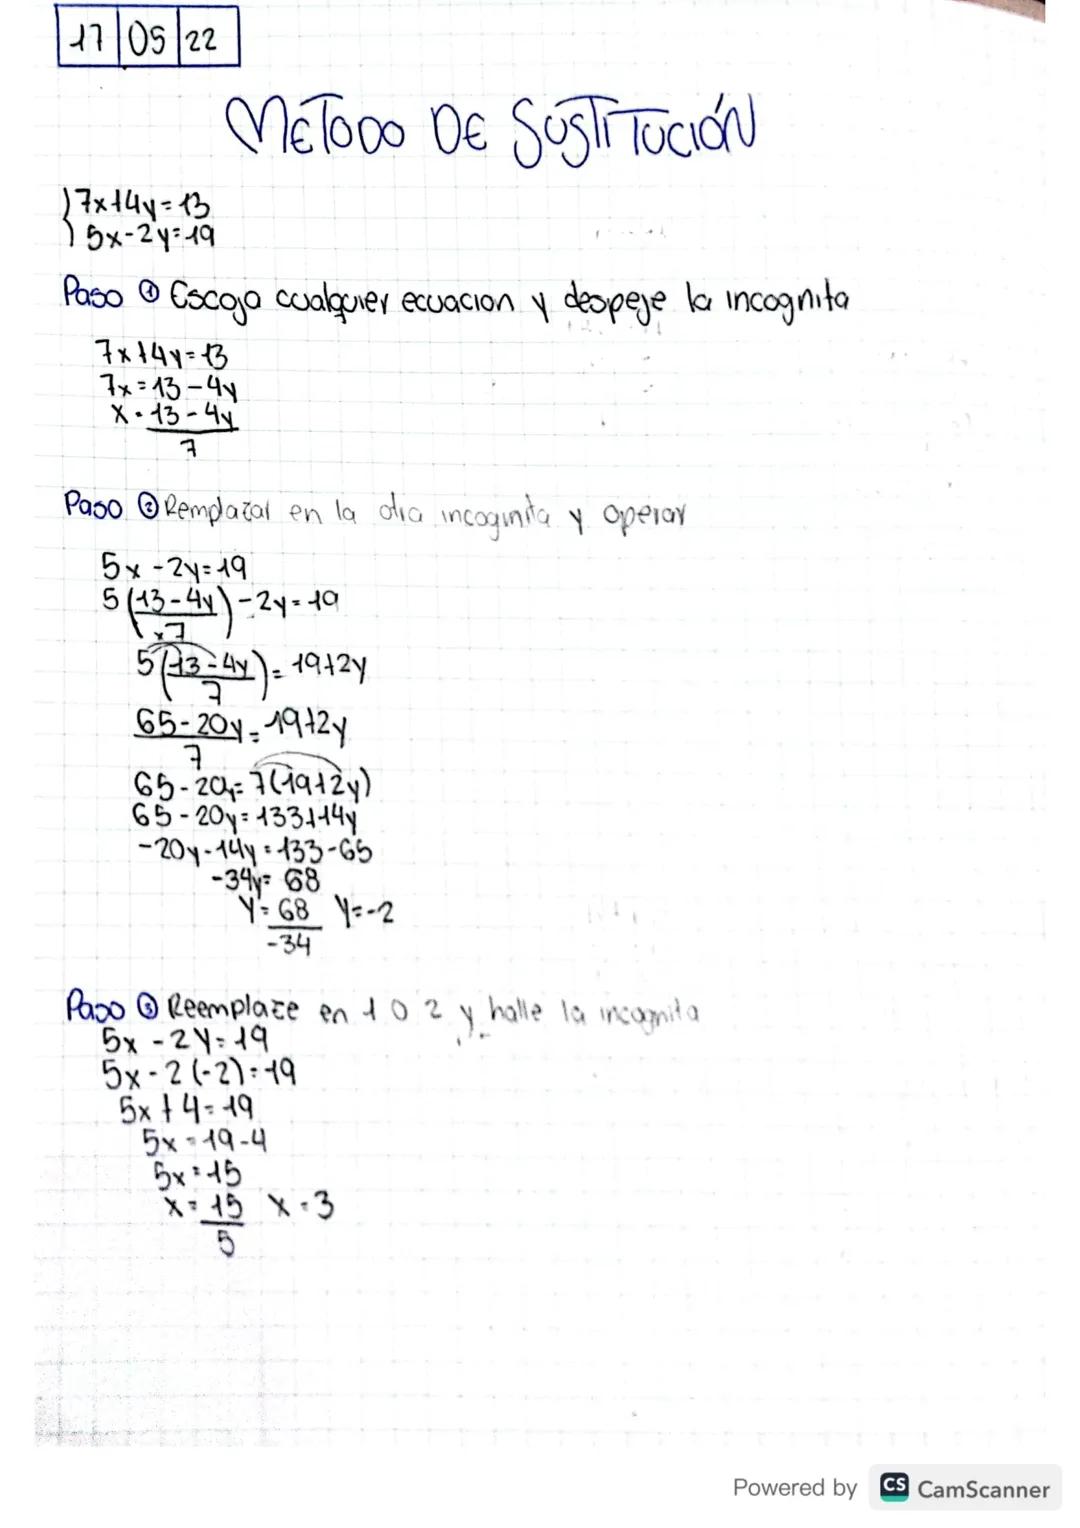 17 05 22
METODO DE SUSTITUCIÓN
7x+4y=13
5x-2y=19
Paso ① Escoja cualquier ecuacion y despeje la incognita
7x+4y=13
7x=13-4y
x=13-4y
7
Paso ② Remplazar en la otra incognita y operar
5x-2y=19
5(13-4y)-2y=19
x7
5(13-4y)=19+2y
7
65-20y=19+2y
7
65-20y=7(19+2y)
65-20y=133+14y
-20y-14y=133-65
-34y=68
y=68 y=-2
-34
Paso ③ Reemplaze en 1 o 2 y halle la incognita
5x-2y=19
5x-2(-2)=19
5x+4=19
5x=19-4
5x=15
x=15 x=3
5
Powered by CS CamScanner